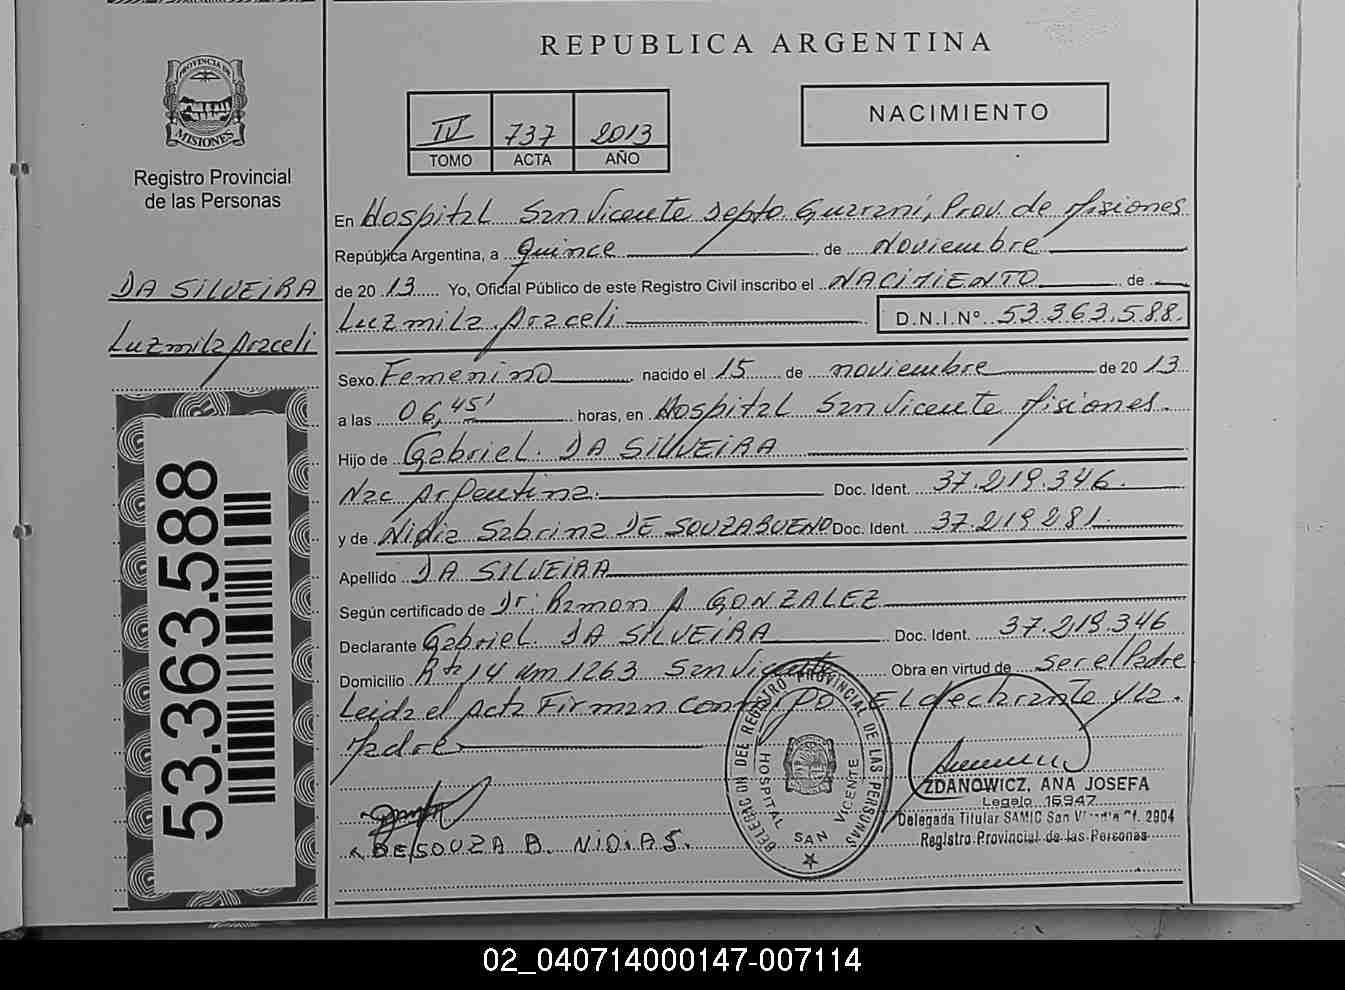 PROVINCIA DE
MISIONES
Registro Provincial
de las Personas
DA SILVEIRA
Luzmila Araceli
53.363.588
REPUBLICA ARGENTINA
IV 737 2013
TOMO ACTA AÑO
NACIMIENTO
En Hospital San Vicente Depto Guaraní, Prov. de Misiones
República Argentina, a quince de Noviembre
de 2013 Yo, Oficial Público de este Registro Civil inscribo el NACIMIENTO de
Luzmila Araceli D.N.I.Nº 53.363.588.
Sexo Femenino nacido el 15 de noviembre de 2013
a las 06,45' horas, en Hospital San Vicente Misiones.
Hijo de Gabriel. DA SILVEIRA
Nac Argentina. Doc. Ident. 37.219.346.
y de Nidia Sabrina DE SOUZA BUENO Doc. Ident. 37.219281.
Apellido DA SILVEIRA
Según certificado de Dr: Ramon A GONZALEZ
Declarante Gabriel. DA SILVEIRA Doc. Ident. 37.219.346
Domicilio Rta 14 Km 1263 San Vicente Obra en virtud de ser el Padre
Leida el Acta Firman conmigo El declarante y la.
Madre
DELEGACION DEL REGISTRO PROVINCIAL DE LAS PERSONAS
HOSPITAL SAN VICENTE
DE SOUZA B. NIDIA S.
ZDANOWICZ, ANA JOSEFA
Legajo 16947
Delegada Titular SAMIC San Of. 2904
Registro Provincial de las Personas
02_040714000147-007114